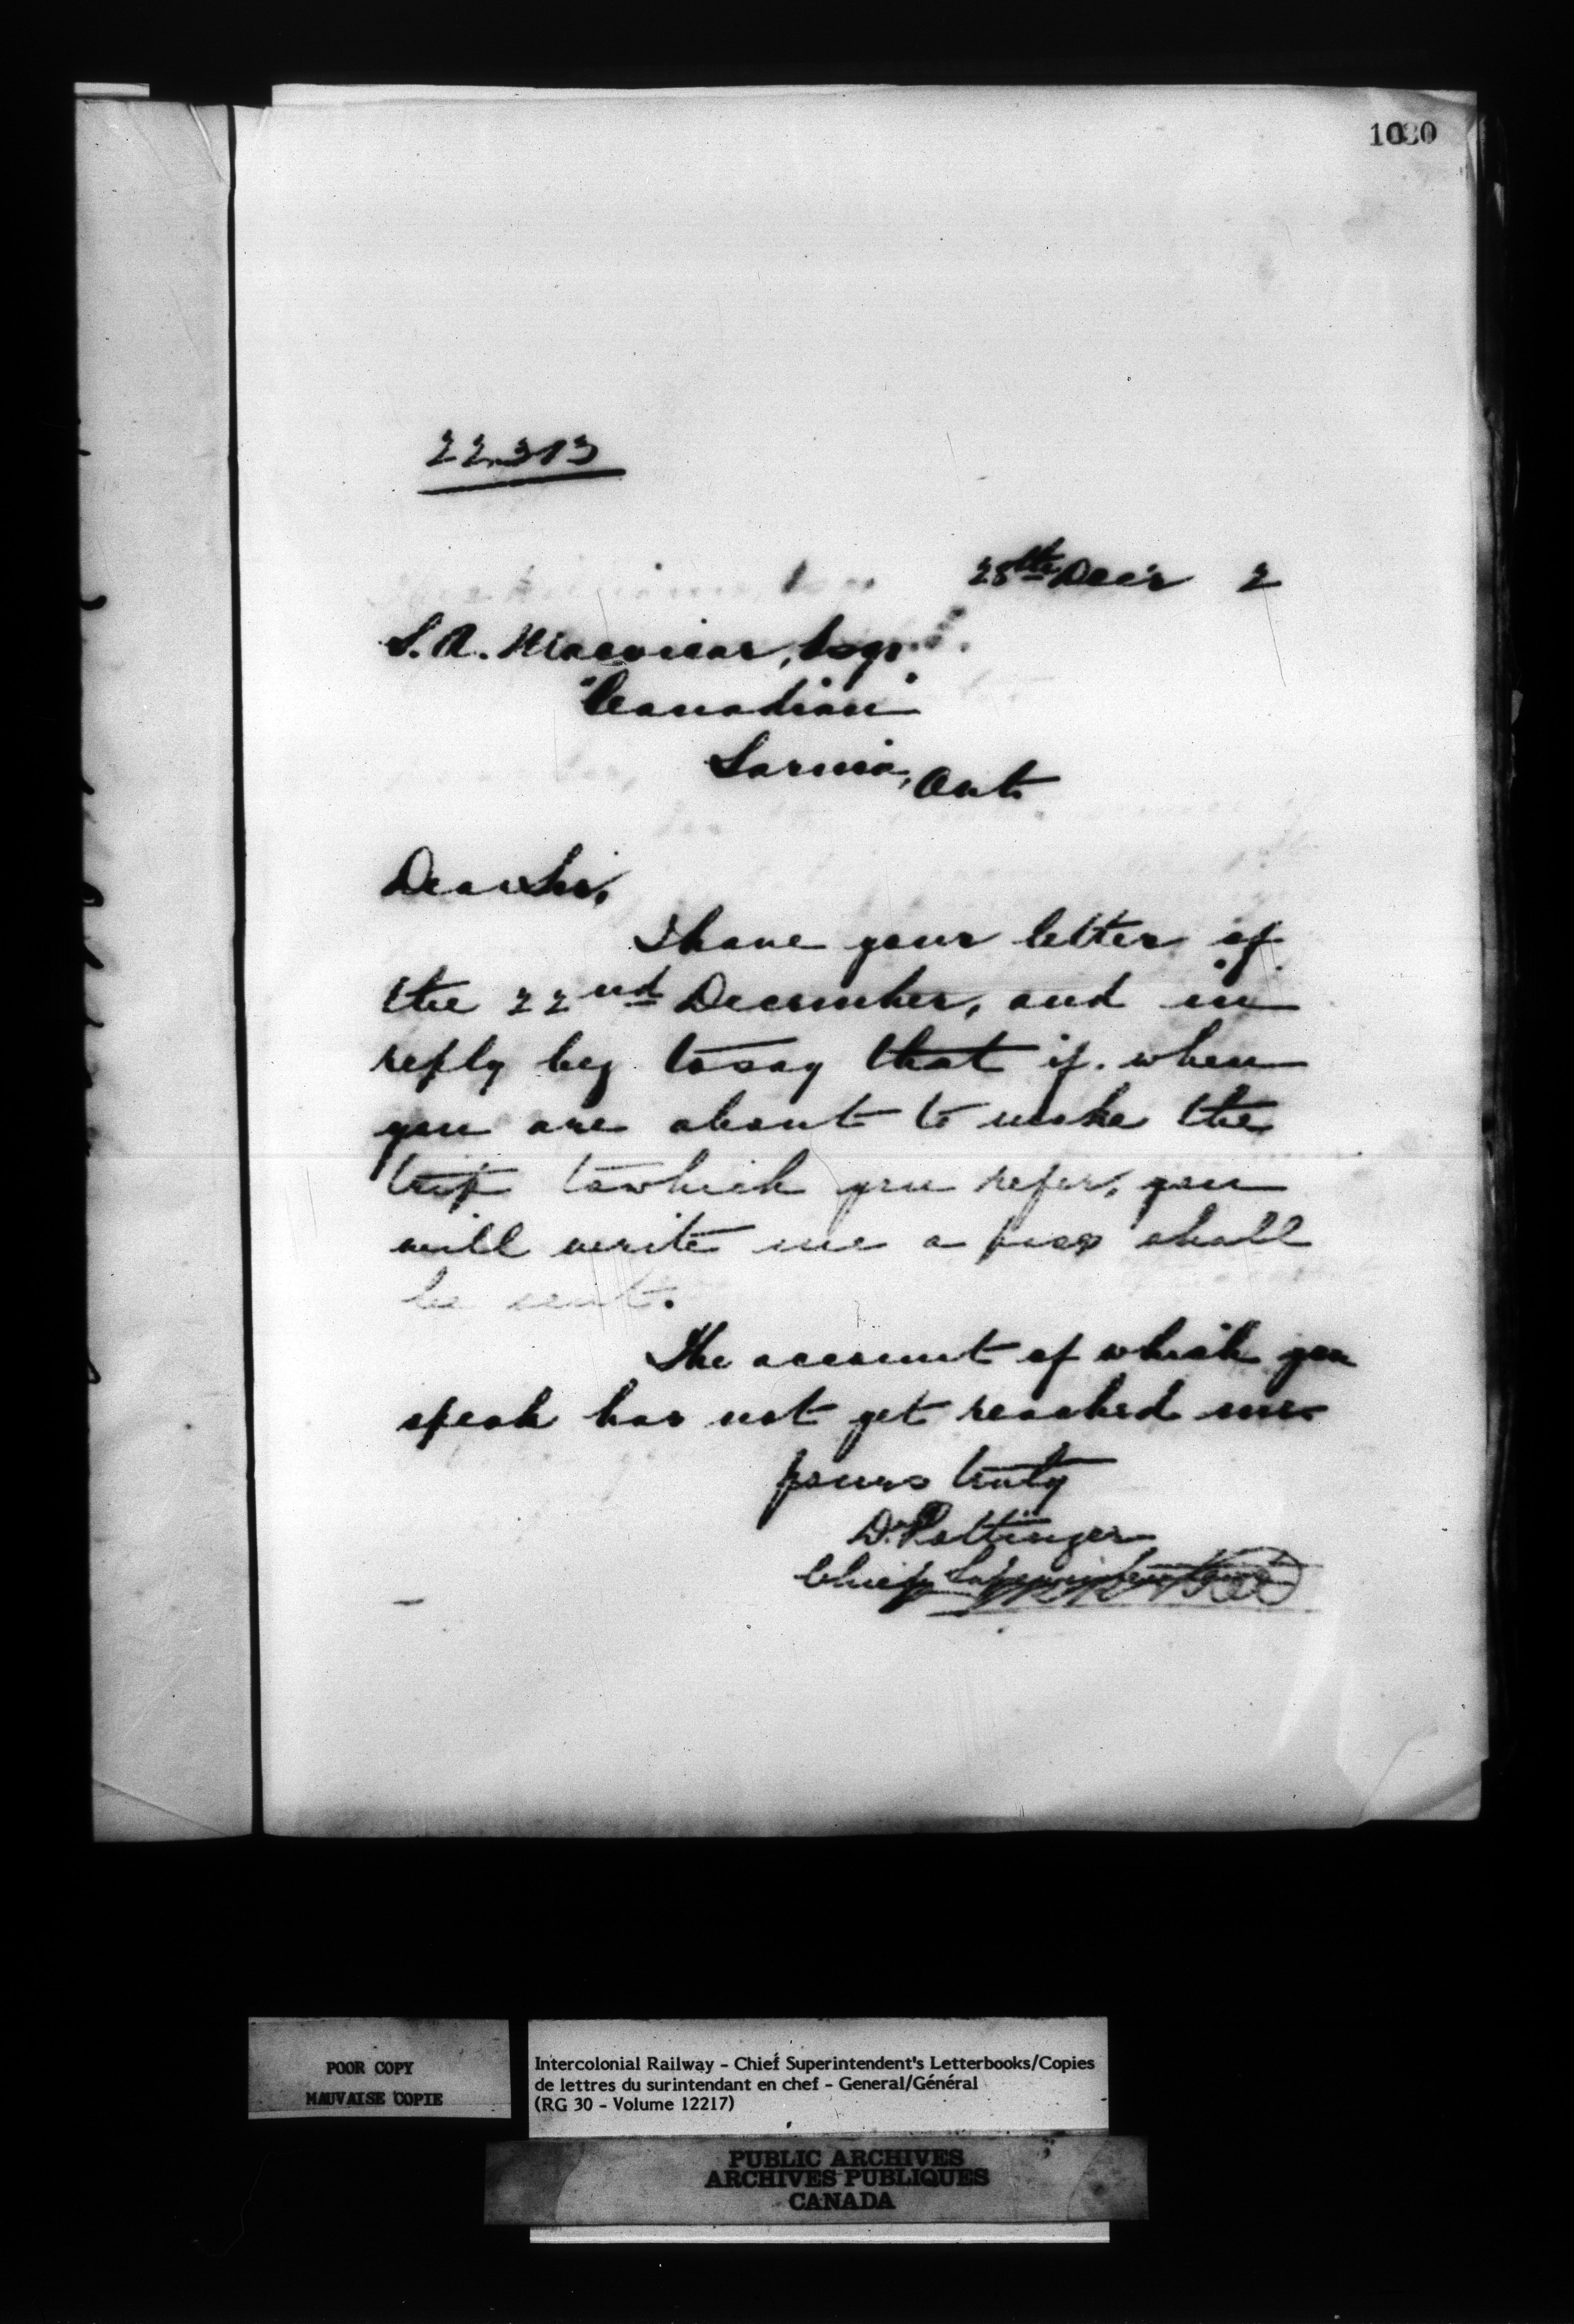 1030
22313
28th Decr 2
S. R. Macvicar, Esqr.
"Canadian"
Sarnia, Ont.
Dear Sir,
I have your letter of
the 22nd December, and in
reply beg to say that if when
you are about to make the
trip to which you refer, you
will write me a pass shall
be sent.
The account of which you
speak has not yet reached me.
Yours truly
D. Pottinger
Chief Superintendent
POOR COPY
MAUVAISE COPIE
Intercolonial Railway - Chief Superintendent's Letterbooks/Copies
de lettres du surintendant en chef - General/Général
(RG 30 - Volume 12217)
PUBLIC ARCHIVES
ARCHIVES PUBLIQUES
CANADA